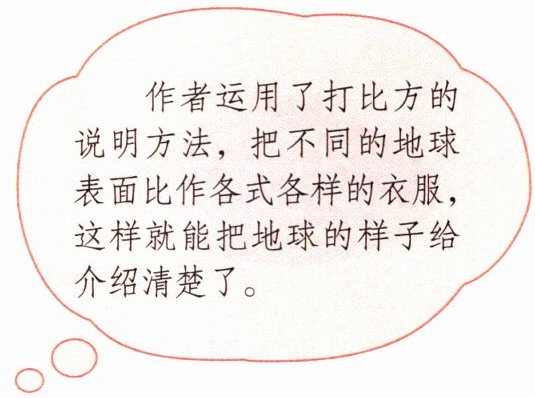 作者运用了打比方的
说明方法，把不同的地球
表面比作各式各样的衣服，
这样就能把地球的样子给
介绍清楚了。